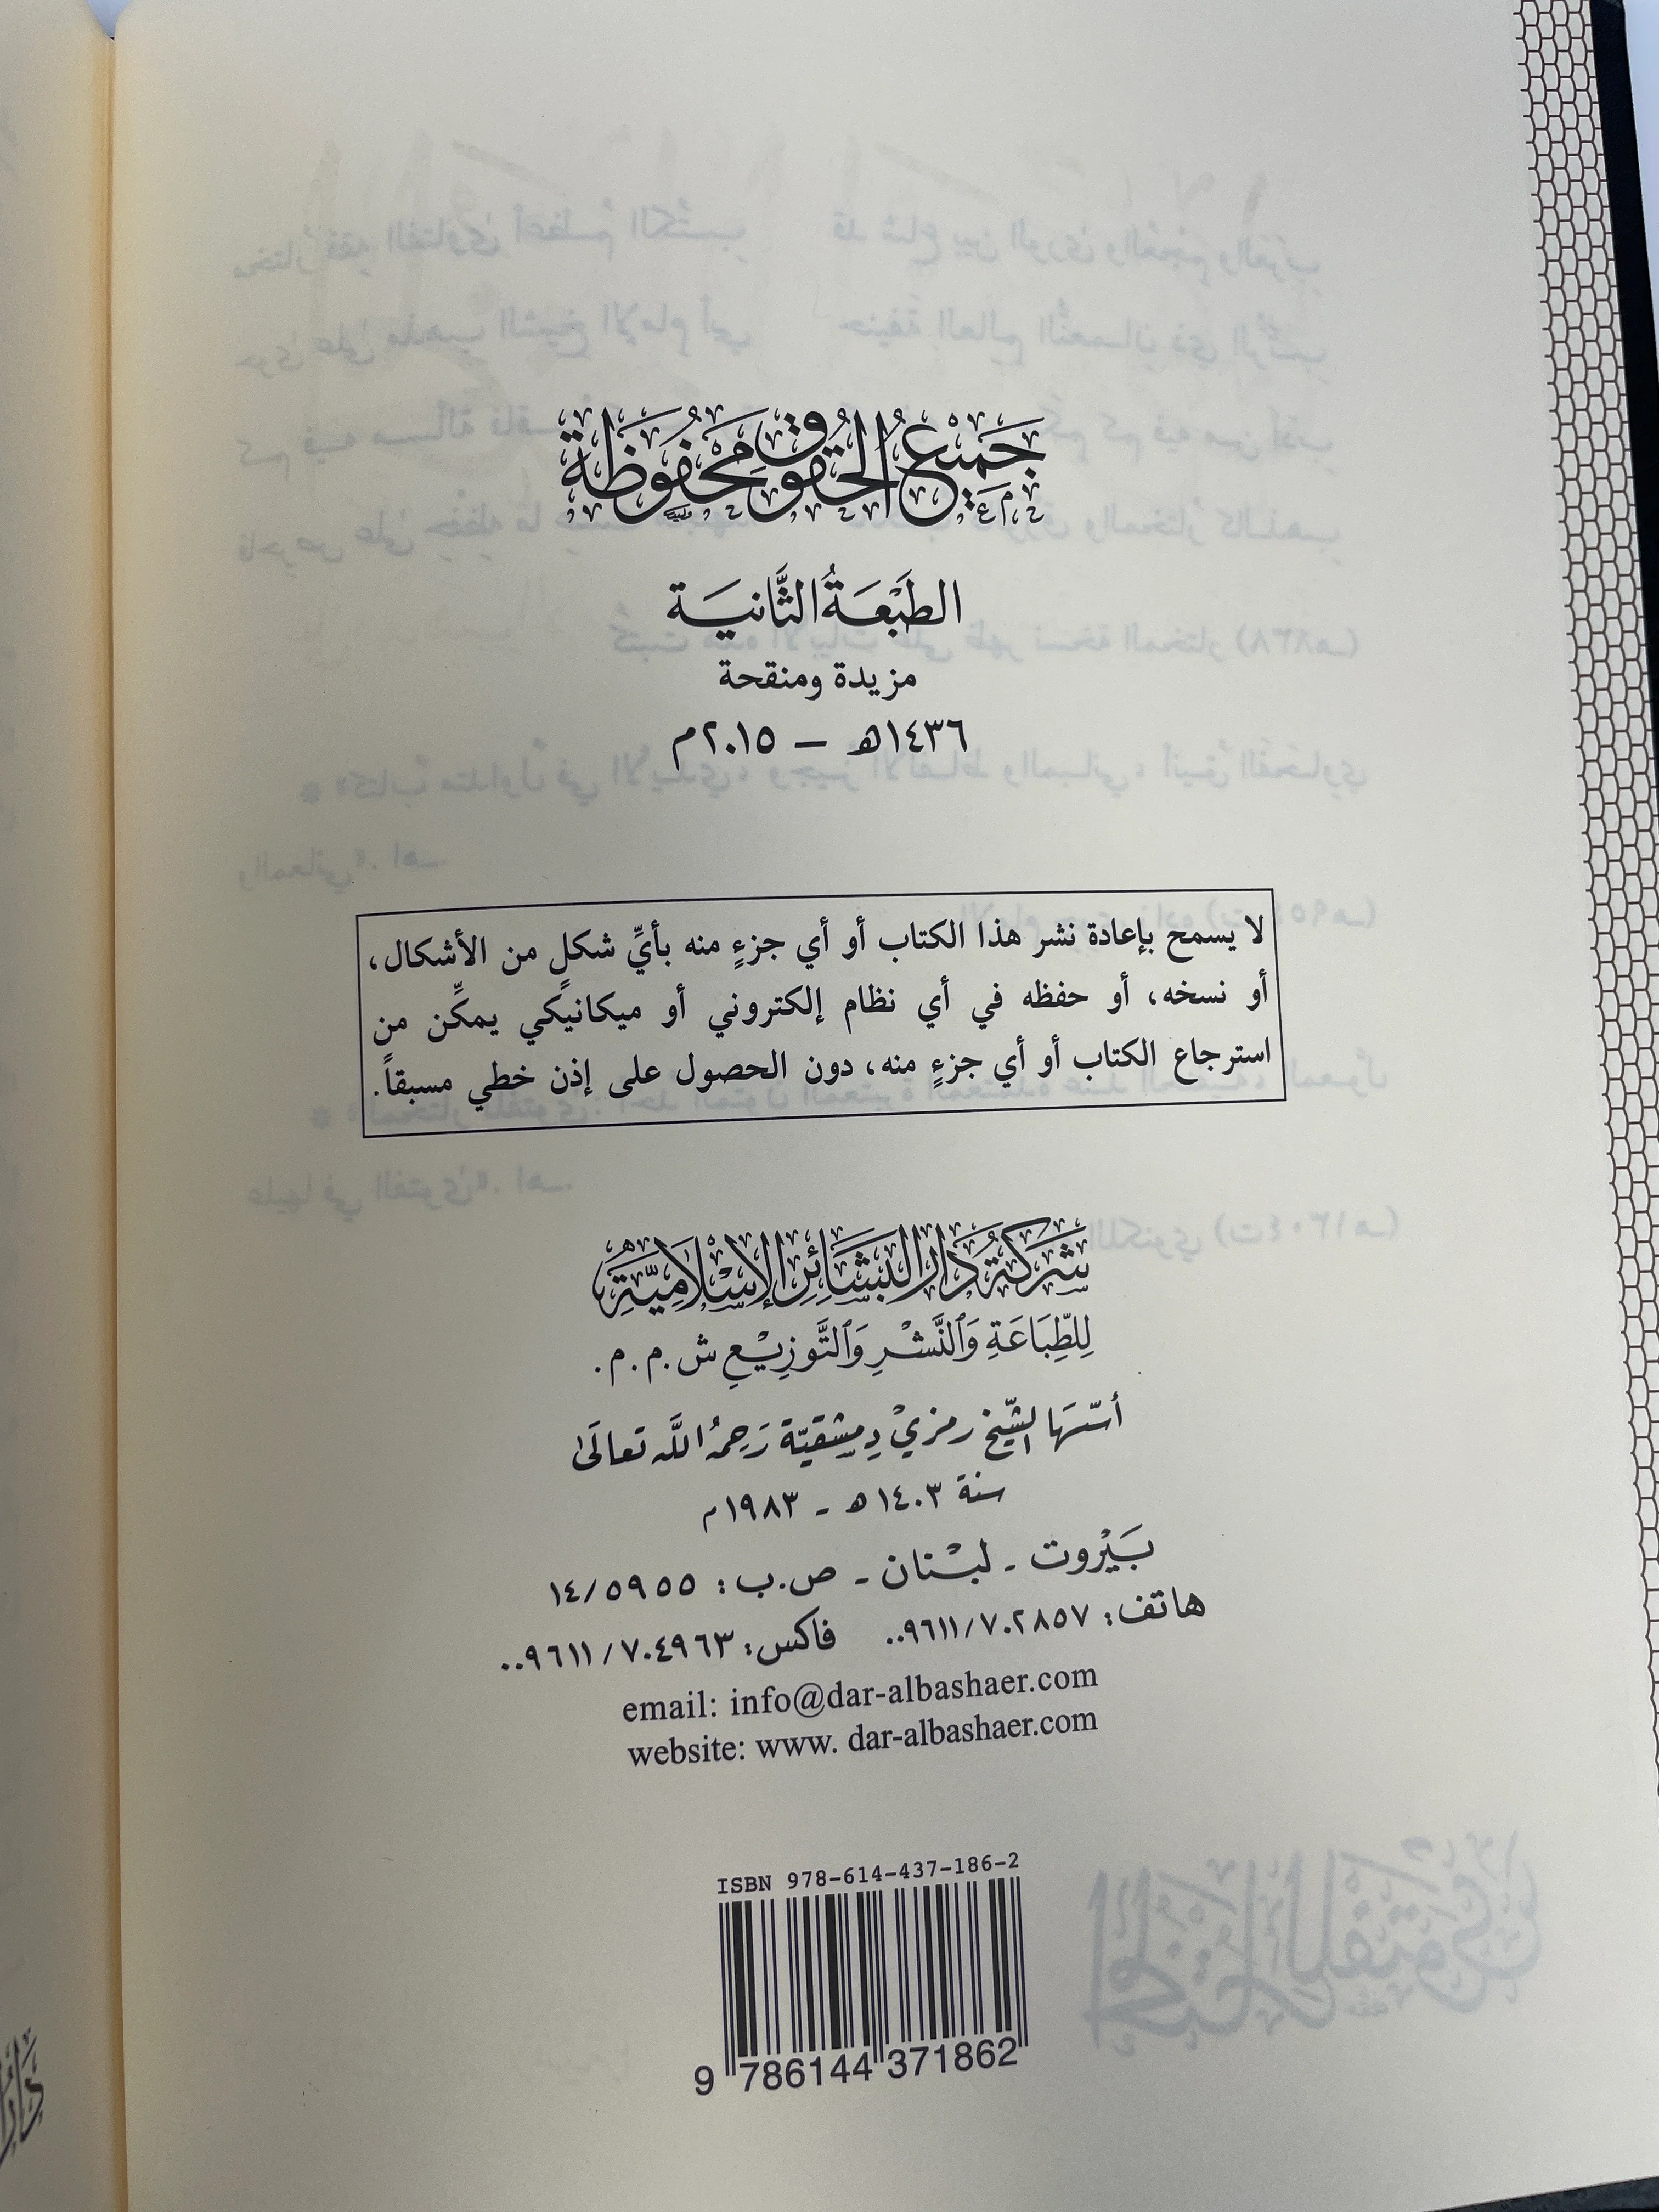 جَمِيْعُ الحُقُوقِ مَحْفُوظَة
الطَّبْعَةُ الثَّانيَة
مزيدة ومنقحة
١٤٣٦هـ – ٢٠١٥م
لا يسمح بإعادة نشر هذا الكتاب أو أي جزءٍ منه بأيِّ شكلٍ من الأشكال،
أو نسخه، أو حفظه في أي نظام إلكتروني أو ميكانيكي يمكِّن من
استرجاع الكتاب أو أي جزءٍ منه، دون الحصول على إذن خطي مسبقاً.
شَرِكَةُ دَارِ البَشَائِرِ الإِسْلَامِيَّةِ
لِلطِّبَاعَةِ وَالنَّشْرِ وَالتَّوزِيْعِ ش.م.م.
أسّسَهَا الشّيخ رمزي دِمشقيّة رَحِمَهُ اللَّه تعالَى
سنة ١٤٠٣ هـ - ١٩٨٣م
بَيْروت - لبْنان - ص.ب: ١٤/٥٩٥٥
هاتف: ٠٠٩٦١١/٧٠٢٨٥٧ فاكس: ٠٠٩٦١١/٧٠٤٩٦٣
email: info@dar-albashaer.com
website: www. dar-albashaer.com
ISBN 978-614-437-186-2
9 786144 371862